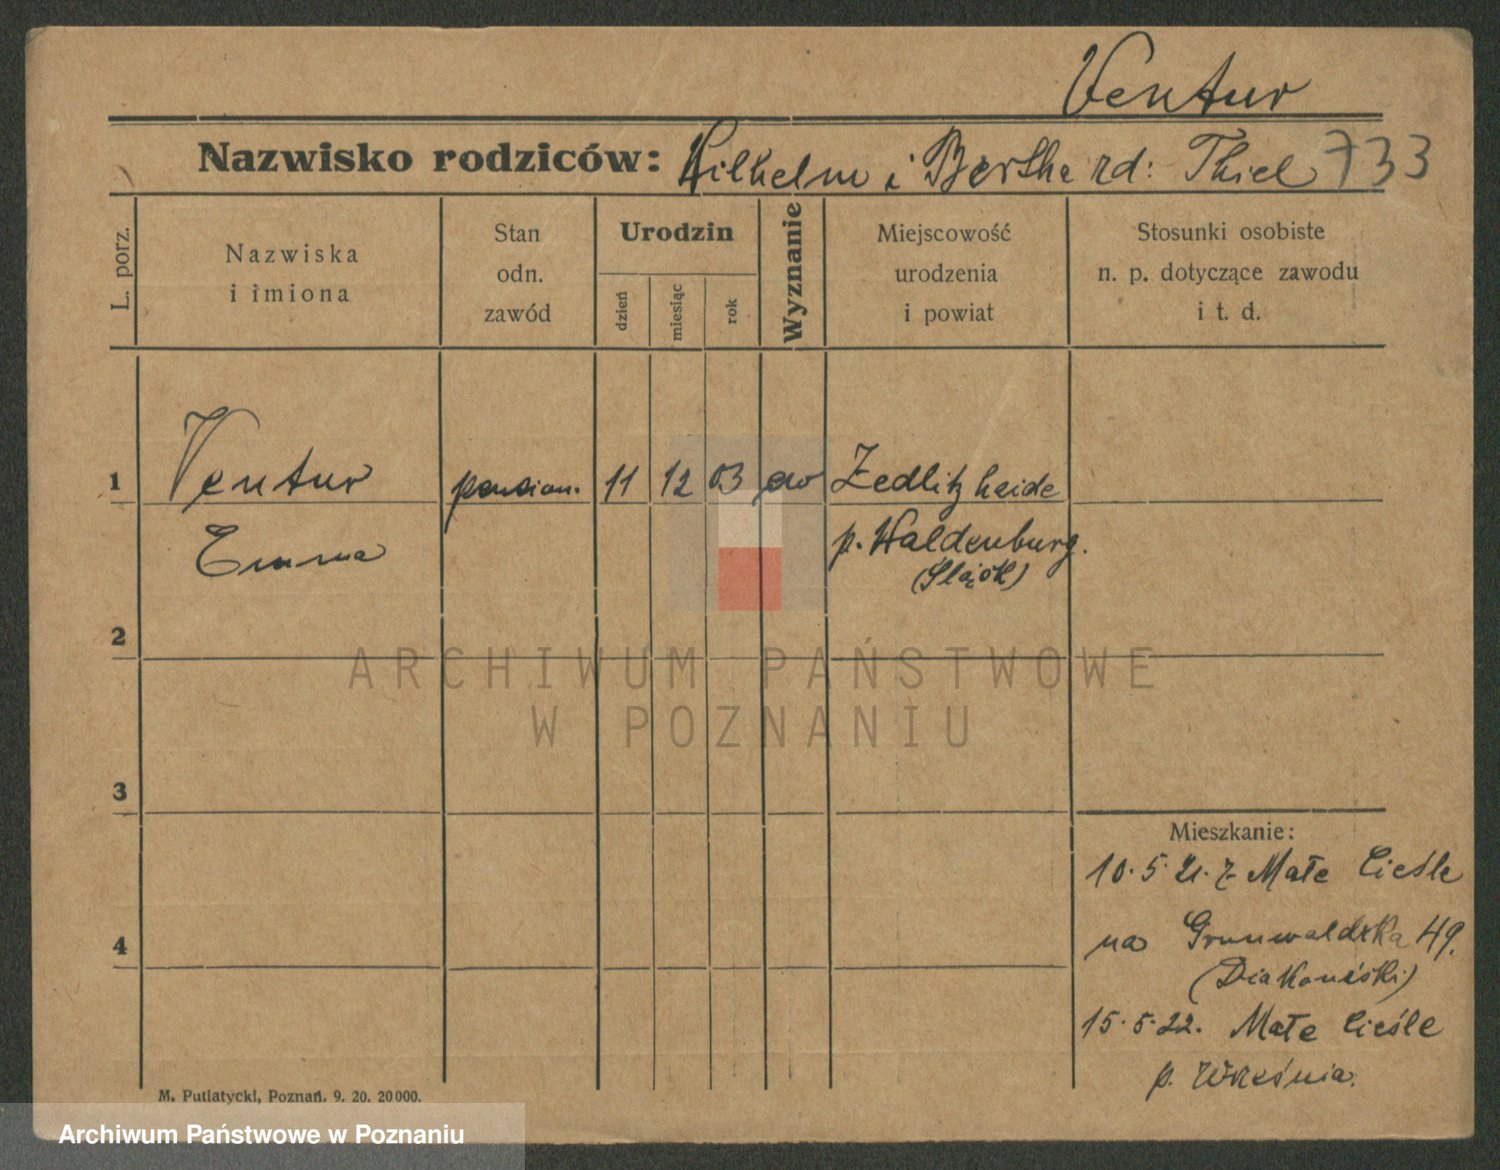 Ventur
Nazwisko rodziców: Wilhelm i Bertha rd: Thiel 733
L. porz.
Nazwiska
i imiona
Stan
odn.
zawód
Urodzin
dzień
miesiąc
rok
Wyznanie
Miejscowość
urodzenia
i powiat
Stosunki osobiste
n. p. dotyczące zawodu
i t. d.
1 Ventur pension. 11 12 03 ew Zedlitzheide
Emma p. Waldenburg.
(Śląsk)
2
ARCHIWUM PAŃSTWOWE
W POZNANIU
3
Mieszkanie:
10.5.21. z Małe Cieśle
4
na Grunwaldzka 49.
(Diakoniski)
15.5.22. Małe Cieśle
p. Września.
M. Putiatycki, Poznań. 9. 20. 20000.
Archiwum Państwowe w Poznaniu